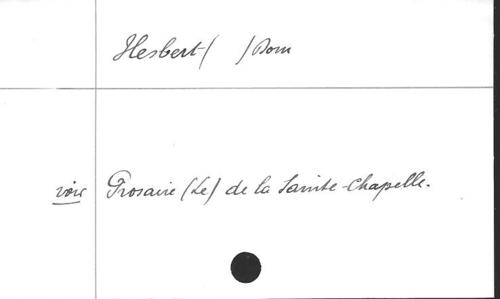 Hesbert ( ) Dom
voir Prosaire (Le) de la Sainte-Chapelle.